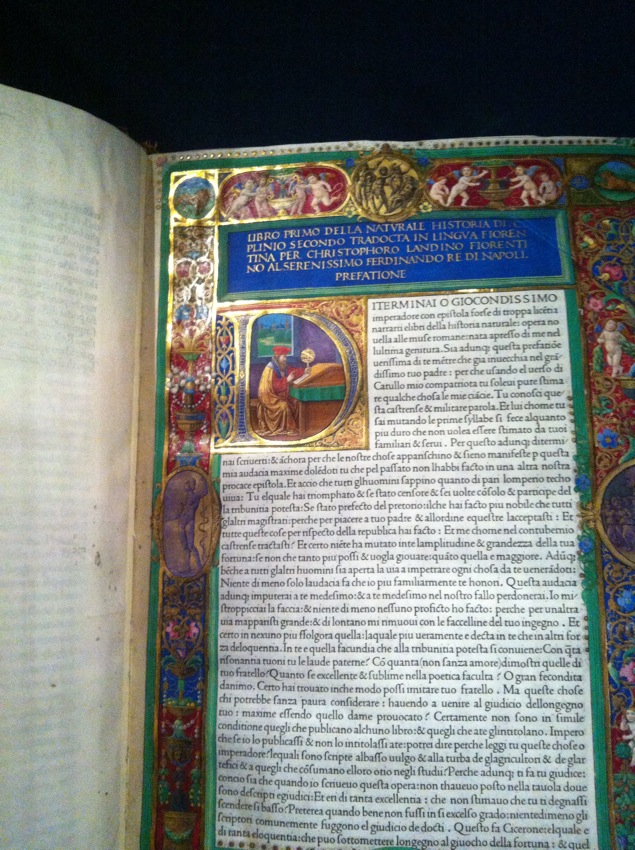 LIBRO PRIMO DELLA NATVRALE HISTORIA DI .C.
PLINIO SECONDO TRADOCTA IN LINGVA FIOREN
TINA PER CHRISTOPHORO LANDINO FIORENTI
NO AL SERENISSIMO FERDINANDO RE DI NAPOLI.
PREFATIONE
ITERMINAI O GIOCONDISSIMO
imperadore con epistola forse di troppa licētia
narrarti elibri della historia naturale: opera no
uella alle muse romane: nata apresso di me nel
lultima genitura. Sia adunq; questa prefatiōe
uerissima di te mētre che gia inuecchia nel grā
dissimo tuo padre : per che usando el uerso di
Catullo mio compatriota tu soleui pure stima
re qualche chosa le mie ciācie. Tu conosci que
sta castrense & militare parola. Et lui chome tu
sai mutando le prime syllabe si fece alquanto
piu duro che non uolea essere stimato da tuoi
familiari & serui . Per questo adunq; ditermi
nai scriuerti: & āchora per che le nostre chose apparischino & sieno manifeste p questa
mia audacia maxime dolēdoti tu che pel passato non lhabbi facto in una altra nostra
procace epistola. Et accio che tutti glhuomini sappino quanto di pari lomperio techo
uiua: Tu elquale hai triomphato & se stato censore & sei uolte cōsolo & participe del
la tribunitia potesta: Se stato prefecto del pretorio: ilche hai facto piu nobile che tutti
glaltri magistrati: perche per piacere a tuo padre & allordine equestre lacceptasti : Et
tutte queste cose per rispecto della republica hai facto : Et me chome nel contubernio
castrense tractasti? Et certo niēte ha mutato inte lamplitudine & grandezza della tua
fortuna: se non che tanto piu possi & uogla giouare: quāto quella e maggiore. Adūq;
bēche a tutti glaltri huomini sia aperta la uia a impetrare ogni chosa da te uenerādoti:
Niente di meno solo laudacia fa che io piu familiarmente te honori. Questa audacia
adunq; imputerai a te medesimo: & a te medesimo nel nostro fallo perdonerai. Io mi
stropicciai la faccia: & niente di meno nessuno proficto ho facto: perche per unaltra
uia mapparisti grande: & di lontano mi rimuoui con le faccelline del tuo ingegno . Et
certo in nexuno piu sfolgora quella: laquale piu ueramente e decta in te che in altri for
za deloquenna. In te e quella facundia che alla tribunitia potesta si conuiene: Con q̄ta
risonantia tuoni tu le laude paterne? Cō quanta (non sanza amore) dimostri quelle di
tuo fratello? Quanto se excellente & sublime nella poetica faculta ? O gran fecondita
danimo. Certo hai trouato inche modo possi imitare tuo fratello . Ma queste chose
chi potrebbe sanza paura considerare : hauendo a uenire al giudicio dellongegno
tuo : maxime essendo quello dame prouocato ? Certamente non sono in simile
conditione quegli che publicano alchuno libro: & quegli che ate glintitolano. Impero
che se io lo publicassi & non lo intitolassi ate: potrei dire perche leggi tu queste chose o
imperadore? lequali sono scripte albasso uulgo & alla turba de glagricultori & de glar
tefici & a quegli che cōsumano elloro otio negli studi? Perche adunq; ti fa tu giudice:
concio sia che quando io scriueuo questa opera: non thaueuo posto nella tauola doue
sono descripti egiudici: Et eri di tanta excellentia : che non stimauo che tu ti degnassi
scendere si basso? Preterea quando bene non fussi in si excelso grado: nientedimeno gli
scriptori comunemente fuggono el giudicio de docti . Questo fa Cicerone: elquale e
di tanta eloquentia: che puo sottomettere longegno al giuocho della fortuna : & quel